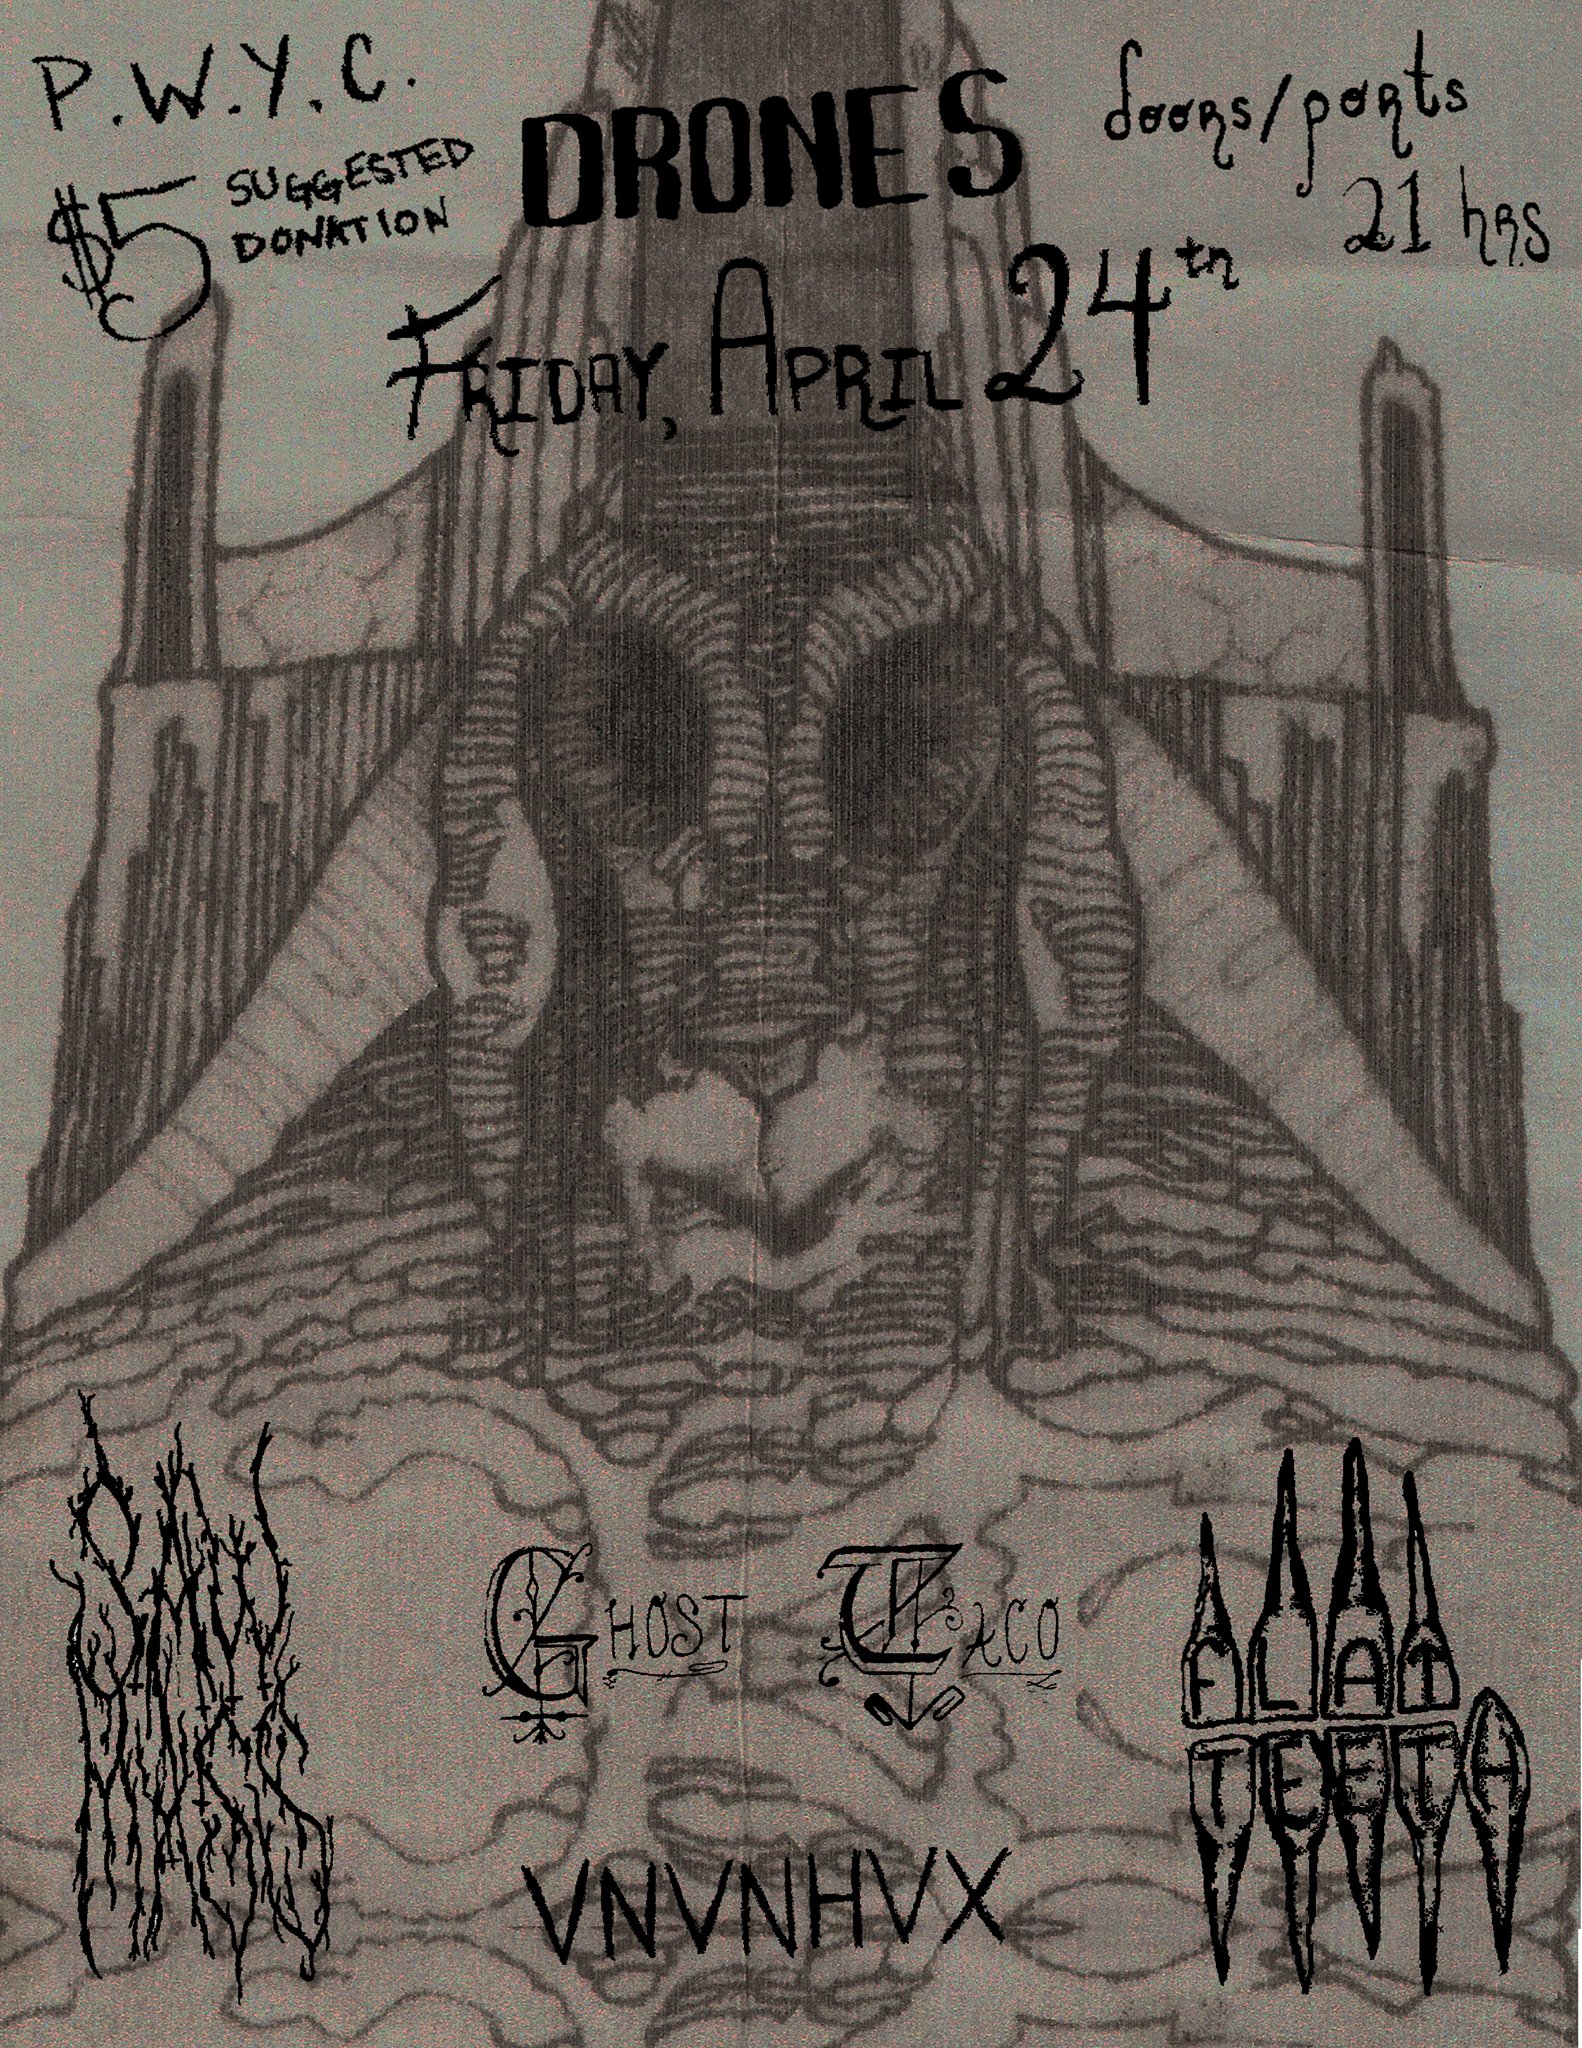 P.W.Y.C.
$5 SUGGESTED
DONATION
DRONES
doors/ports
21 hrs
FRIDAY, APRIL 24th
GHOST TACO
FLAT
TEETH
VNVNHVX